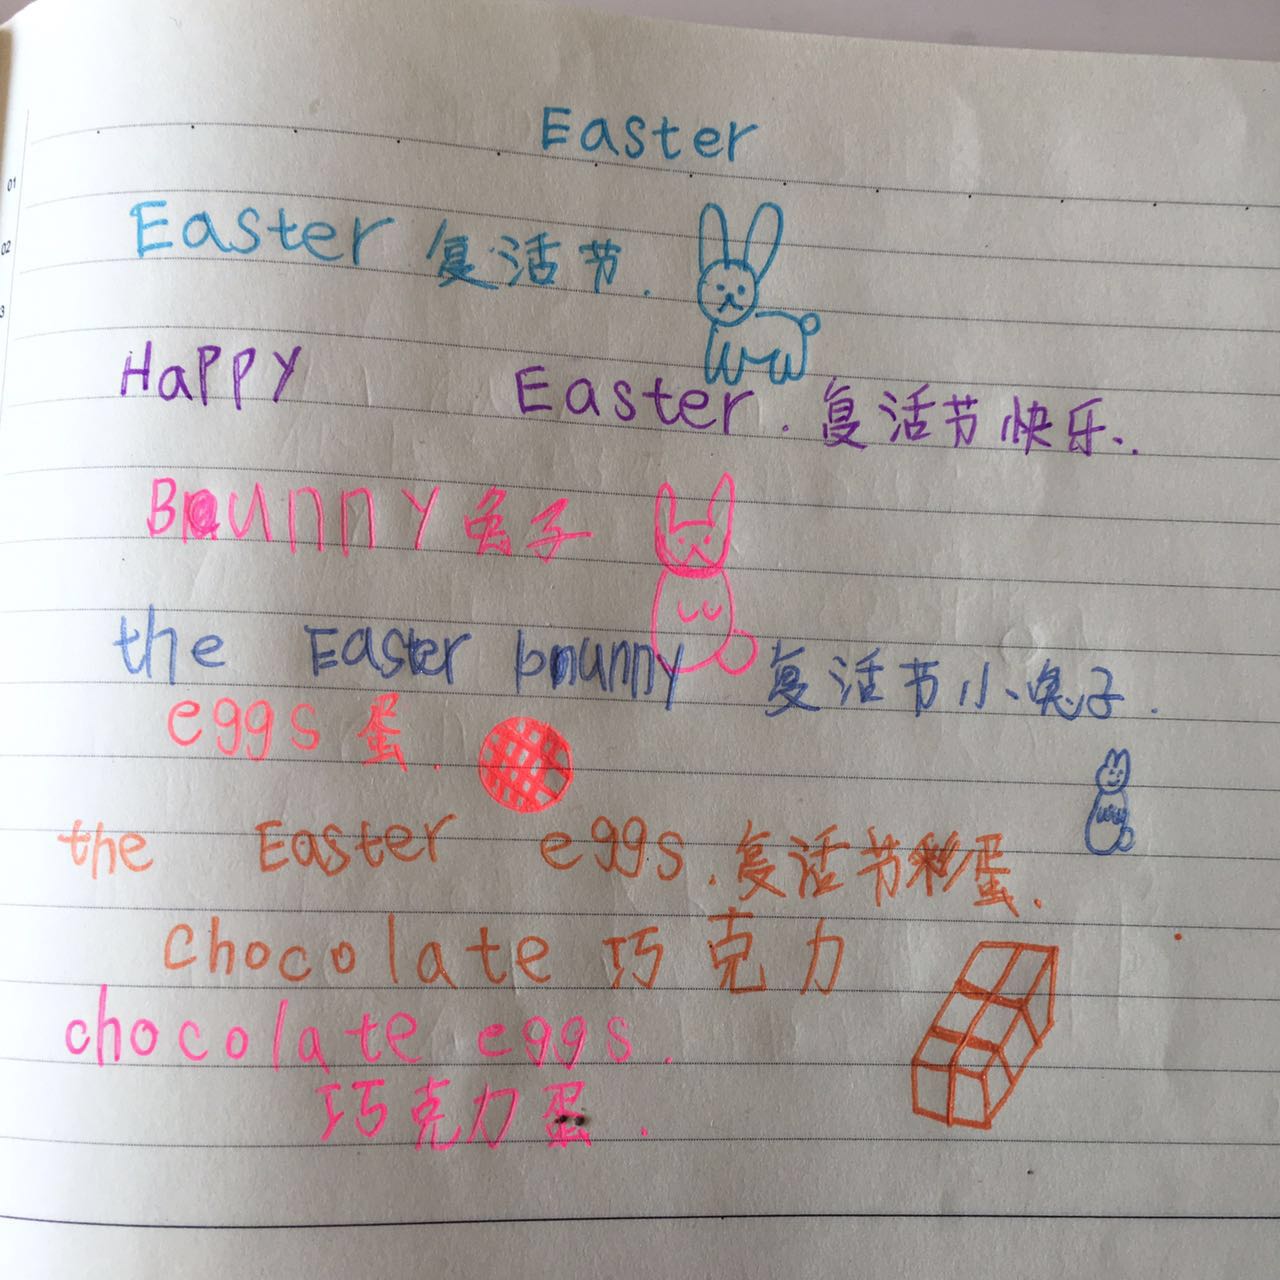 Easter
Easter 复活节.
Happy Easter. 复活节快乐.
Bunny 兔子
the Easter bunny 复活节小兔子.
eggs 蛋.
the Easter eggs. 复活节彩蛋.
chocolate 巧克力
chocolate eggs.
巧克力蛋.
01
02
3